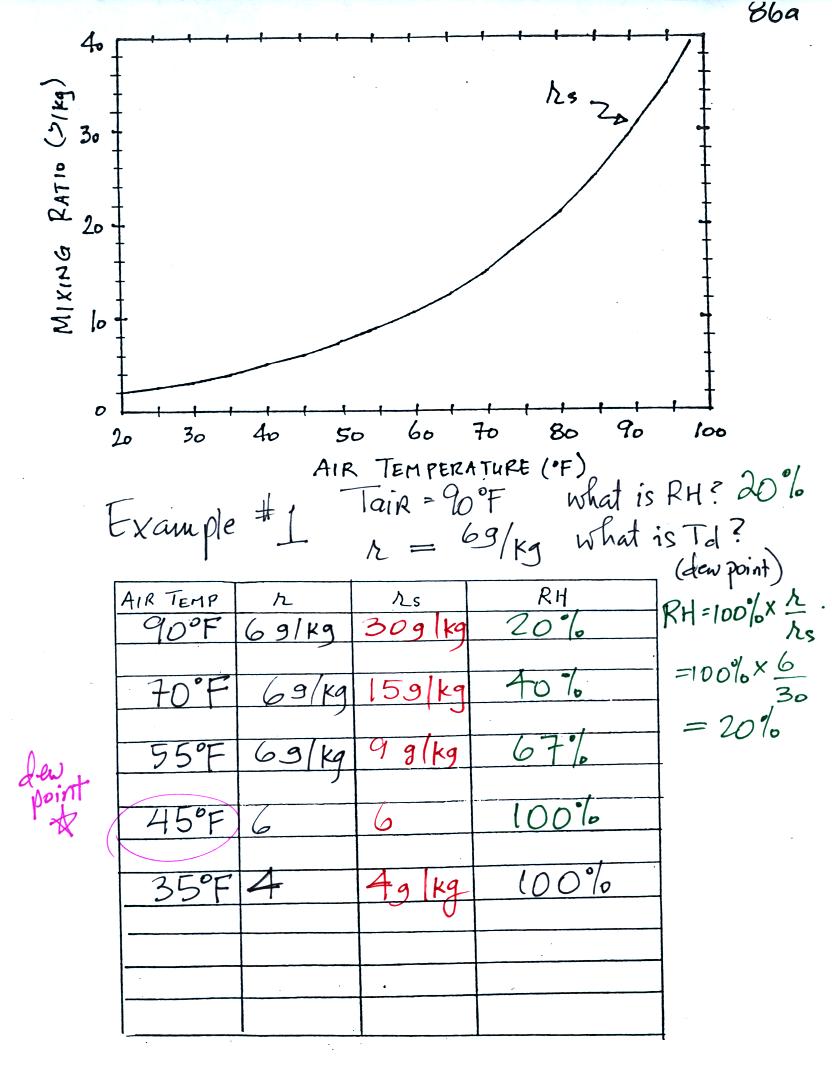 86a
40
30
20
10
0
MIXING RATIO (g/kg)
rs
20 30 40 50 60 70 80 90 100
AIR TEMPERATURE (°F)
Example #1 TAIR = 90°F what is RH? 20%
r = 6g/kg what is Td?
(dew point)
AIR TEMP r rs RH
90°F 6g/kg 30g/kg 20%
70°F 6g/kg 15g/kg 40%
55°F 6g/kg 9 g/kg 67%
45°F 6 6 100%
35°F 4 4g/kg 100%
RH=100% x r/rs
=100% x 6/30
= 20%
dew
point